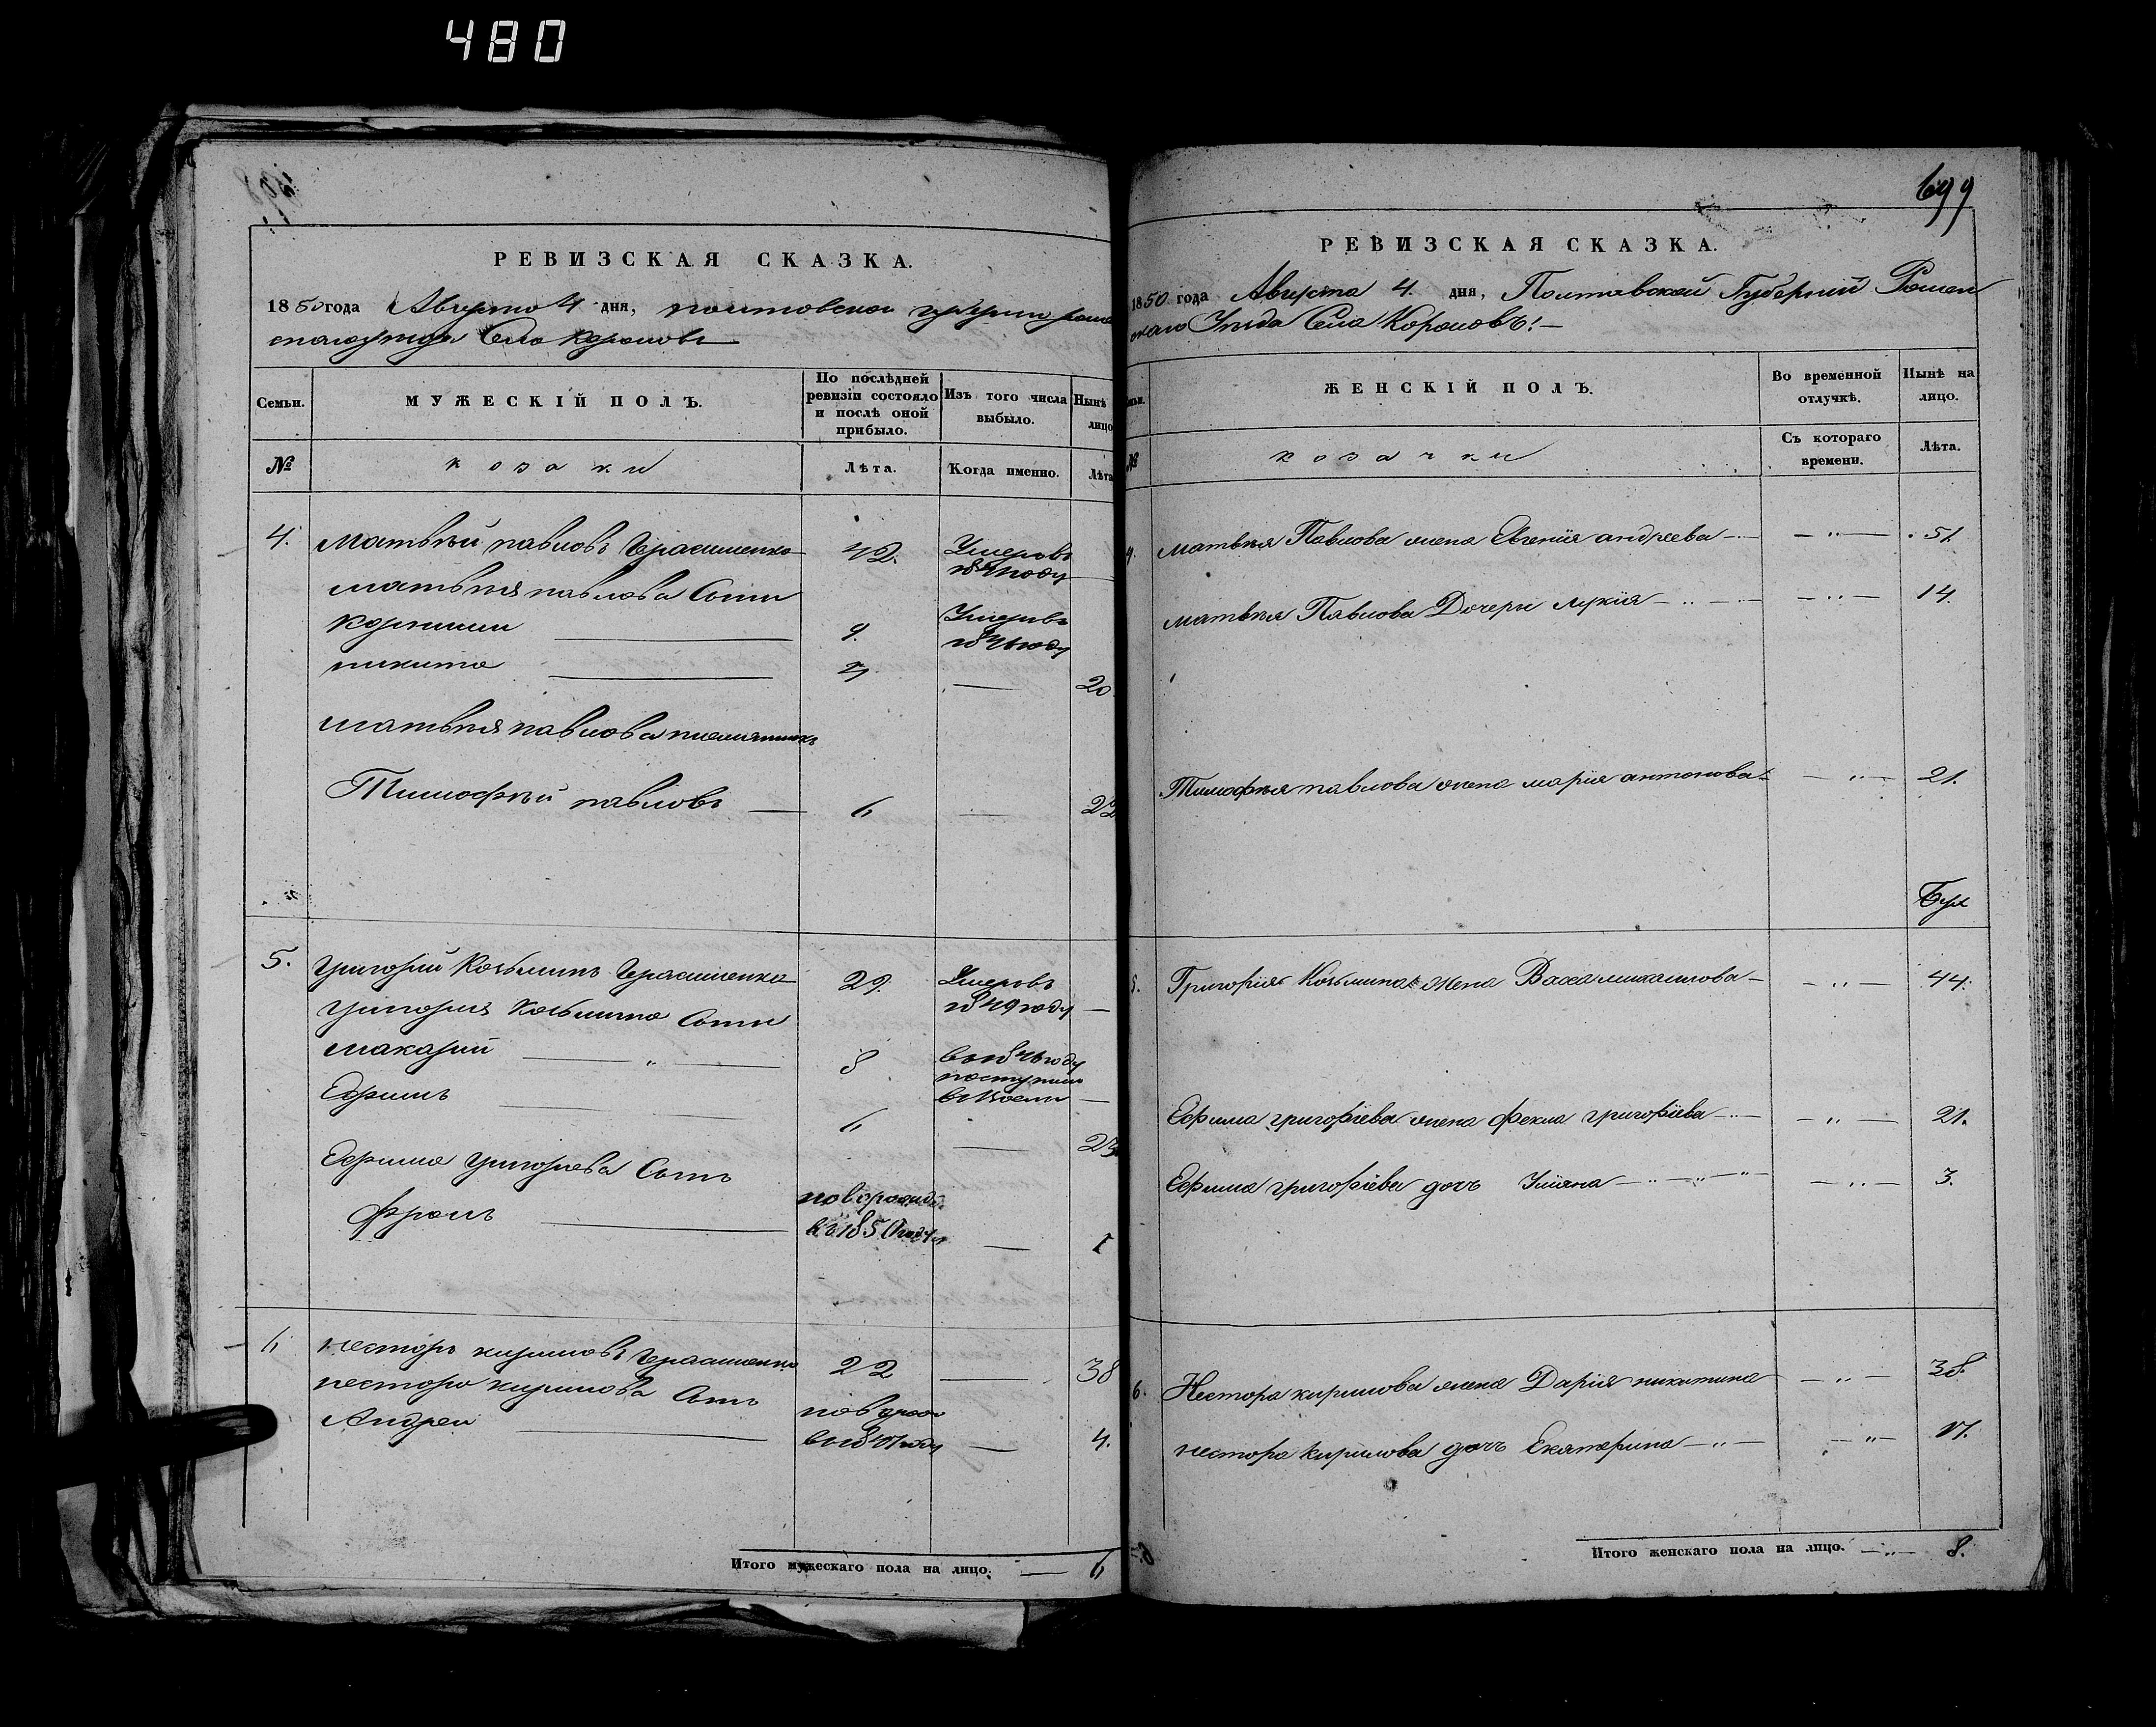 480
РЕВИЗСКАЯ СКАЗКА.
1850 года Августа 4 дня, полтовской губерни роме
скаго уезда Села Корововъ
Семьи.
МУЖЕСКІЙ ПОЛЪ.
По послѣдней ревизіи состояло и послѣ оной прибыло.
Изъ того числа выбыло.
Нынѣ лицо
№
козаки
Лѣта.
Когда именно.
Лѣта
4. Матвѣй павловъ Герасименко 42. Умеръ въ
1841 году
матвѣя павлова Сыни
Корнилий 9. Умеръ въ
184 году
никита 4. 20
матвѣя павлова племянникъ
Тимофѣй павловъ 6 22
5. Григорий Козьминъ Герасименко 29. Умеръ въ
1849 году
Григория Козьмина Сыни
Макарий 8 въ 1846 году
поступил
Ефимъ 6 23
Ефима Григорьева Сынъ
новорожд.
въ 1850 году 1
6 несторъ кириловъ Герасименко 22 38
нестора кирилова Сынъ
Андрей новорож
4.
Итого мужескаго пола на лицо. 6
699
РЕВИЗСКАЯ СКАЗКА.
1850 года Августа 4. дня, Полтавской Губерніи Ромен
скаго Уѣзда Села Корововъ:
ЖЕНСКІЙ ПОЛЪ.
Во временной отлучкѣ.
Нынѣ на лицо.
№
козачки
Съ котораго времени.
Лѣта.
4. матвѣя Павлова жена Евгенія андреева 51.
матвѣя Павлова Дочери Лукія 14.
Тимофѣя павлова жена марія антонова 21.
5. Григорія Козьмина жена Васа михаилова 44.
Ефима григоріева жена фекла григоріева 21.
Ефима григоріева дочъ Уліяна 3.
6. Нестора кирилова жена Дарія никитина 38.
нестора кирилова дочъ Екатерина
Итого женскаго пола на лицо. 8.